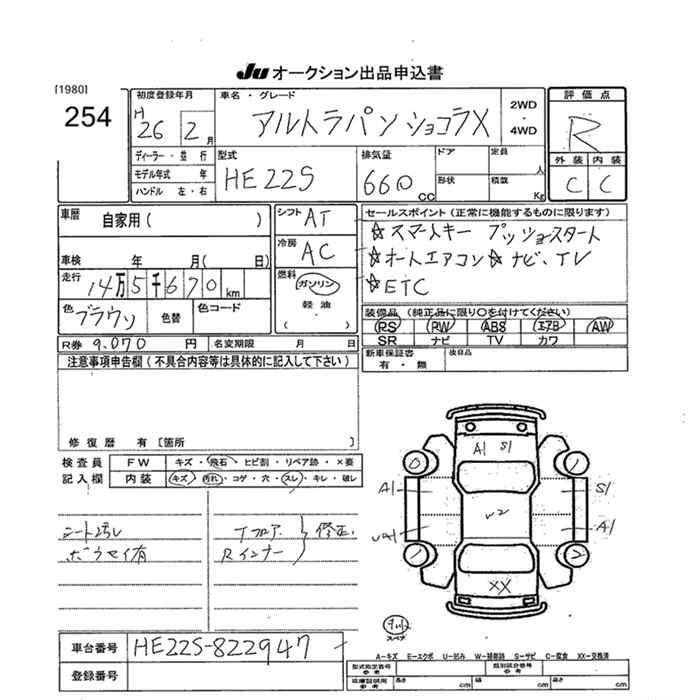 JU オークション出品申込書
[1980]
254
初度登録年月
H
26 2月
車名・グレード
アルトラパン ショコラX
2WD
・
4WD
評価点
R
外装 内装
C C
ディーラー・並行
モデル年式 年
ハンドル 左・右
型式
HE22S
排気量
660
cc
ドア
定員
人
形状
積載
Kg
車歴
自家用( )
シフト AT
セールスポイント(正常に機能するものに限ります)
☆スマートキー プッシュスタート
☆オートエアコン☆ナビ、TV
☆ETC
車検 年 月( 日)
冷房 AC
走行
14万5千670km
燃料
ガソリン
軽油
( )
色
ブラウン
色替
色コード
装備品(純正品に限り○を付けてください)
PS PW ABS エアB AW
SR ナビ TV カワ
R券 9.070 円
名変期限 月 日
新車保証書
有・無
後日品
注意事項申告欄(不具合内容等は具体的に記入して下さい)
修復歴 有[箇所 ]
検査員
記入欄
FW キズ・飛石・ヒビ割・リペア跡・×要
内装 キズ・汚れ・コゲ・穴・スレ・キレ・破レ
シート汚レ
ボウセイ有
Tフロア
Rインナー
修正
A1 S1
A1 S1
W2
A1
XX
スペア
車台番号 HE22S-822947
登録番号
A-キズ E-エクボ U-凹み W-補修跡 S-サビ C-腐食 XX-交換済
型式指定番号
参考
類別区分番号
参考
車庫証明用
参考
長さ cm
幅 cm
高さ cm